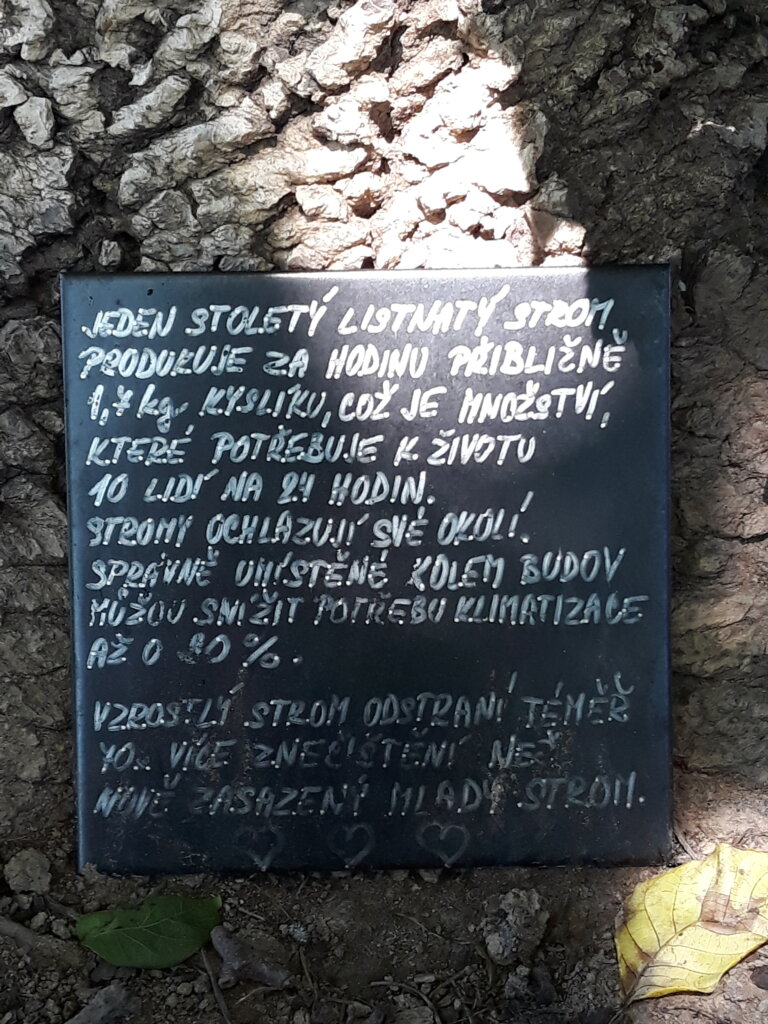 JEDEN STOLETÝ LISTNATÝ STROM
PRODUKUJE ZA HODINU PŘIBLIŽNĚ
1,7 kg KYSLÍKU, COŽ JE MNOŽSTVÍ,
KTERÉ POTŘEBUJE K ŽIVOTU
10 LIDÍ NA 24 HODIN.
STROMY OCHLAZUJÍ SVÉ OKOLÍ.
SPRÁVNĚ UMÍSTĚNÉ KOLEM BUDOV
MŮŽOU SNÍŽIT POTŘEBU KLIMATIZACE
AŽ O %.
VZROSTLÝ STROM ODSTRANÍ TÉMĚŘ
VÍCE ZNEČIŠTĚNÍ NEŽ
NOVĚ ZASAZENÝ MLADÝ STROM.